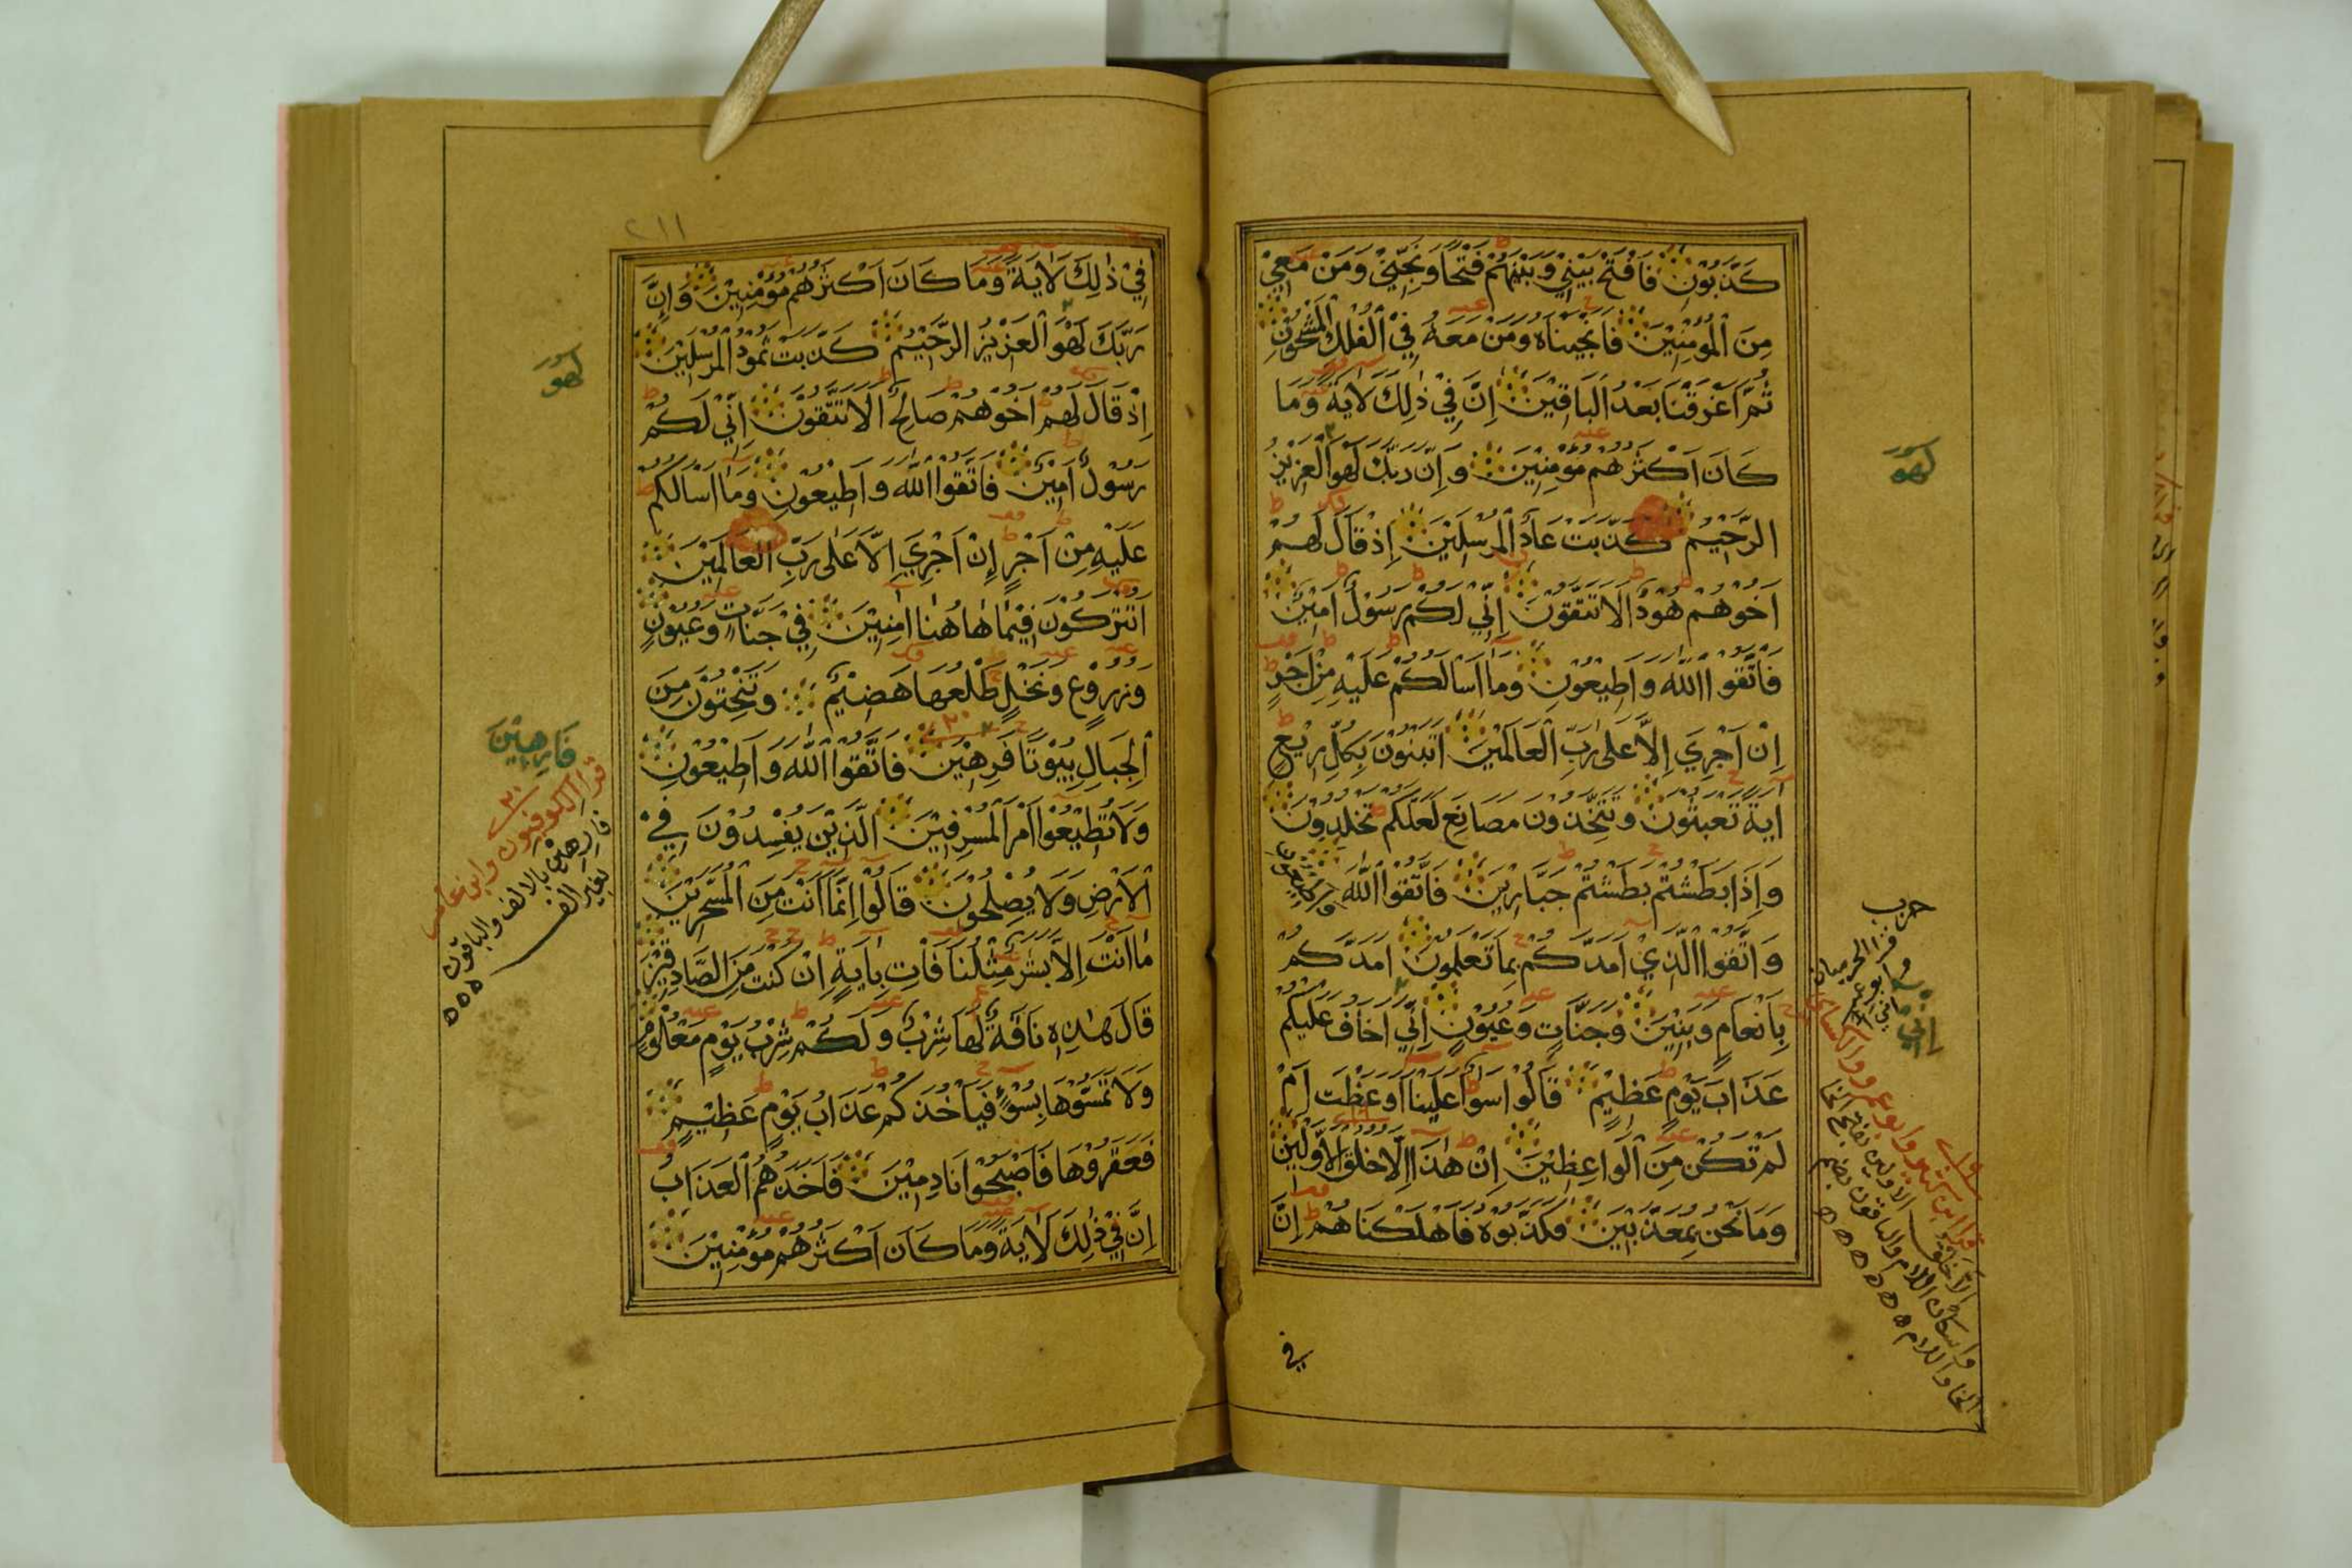 كَذَّبُوْنِ فَافْتَحْ بَيْنِيْ وَبَيْنَهُمْ فَتْحًا وَنَجِّنِيْ وَمَنْ مَعِيْ
مِنَ الْمُؤْمِنِيْنَ فَانْجَيْنَاهُ وَمَنْ مَعَهُ فِيْ الْفُلْكِ الْمَشْحُوْنِ
ثُمَّ اَغْرَقْنَا بَعْدُ الْبَاقِيْنَ اِنَّ فِيْ ذٰلِكَ لَاٰيَةً وَمَا
كَانَ اَكْثَرُهُمْ مُؤْمِنِيْنَ وَاِنَّ رَبَّكَ لَهْوَ الْعَزِيْزُ
الرَّحِيْمُ كَذَّبَتْ عَادُ الْمُرْسَلِيْنَ اِذْ قَالَ لَهُمْ
اَخُوْهُمْ هُوْدٌ اَلَا تَتَّقُوْنَ اِنِّيْ لَكُمْ رَسُوْلٌ اَمِيْنٌ
فَاتَّقُوا اللّٰهَ وَاَطِيْعُوْنِ وَمَا اَسْاَلُكُمْ عَلَيْهِ مِنْ اَجْرٍ
اِنْ اَجْرِيَ اِلَّا عَلٰى رَبِّ الْعَالَمِيْنَ اَتَبْنُوْنَ بِكُلِّ رِيْعٍ
اٰيَةً تَعْبَثُوْنَ وَتَتَّخِذُوْنَ مَصَانِعَ لَعَلَّكُمْ تَخْلُدُوْنَ
وَاِذَا بَطَشْتُمْ بَطَشْتُمْ جَبَّارِيْنَ فَاتَّقُوا اللّٰهَ وَاَطِيْعُوْنِ
وَاتَّقُوا الَّذِيْ اَمَدَّكُمْ بِمَا تَعْلَمُوْنَ اَمَدَّكُمْ
بِاَنْعَامٍ وَبَنِيْنَ وَجَنَّاتٍ وَعُيُوْنٍ اِنِّيْ اَخَافُ عَلَيْكُمْ
عَذَابَ يَوْمٍ عَظِيْمٍ قَالُوْا سَوَاءٌ عَلَيْنَا اَوَعَظْتَ اَمْ
لَمْ تَكُنْ مِنَ الْوَاعِظِيْنَ اِنْ هٰذَا اِلَّا خَلْقُ الْاَوَّلِيْنَ
وَمَا نَحْنُ بِمُعَذَّبِيْنَ فَكَذَّبُوْهُ فَاَهْلَكْنَاهُمْ اِنَّ
في
لهو
حزب
اني
قرا ابن كثير وابو عمرو والكسائي
الا خلق الاولين بفتح الخا
واسكان اللام والباقون بضم
الخا واللام
٢١١
فِيْ ذٰلِكَ لَاٰيَةً وَمَا كَانَ اَكْثَرُهُمْ مُؤْمِنِيْنَ وَاِنَّ
رَبَّكَ لَهْوَ الْعَزِيْزُ الرَّحِيْمُ كَذَّبَتْ ثَمُوْدُ الْمُرْسَلِيْنَ
اِذْ قَالَ لَهُمْ اَخُوْهُمْ صَالِحٌ اَلَا تَتَّقُوْنَ اِنِّيْ لَكُمْ
رَسُوْلٌ اَمِيْنٌ فَاتَّقُوا اللّٰهَ وَاَطِيْعُوْنِ وَمَا اَسْاَلُكُمْ
عَلَيْهِ مِنْ اَجْرٍ اِنْ اَجْرِيَ اِلَّا عَلٰى رَبِّ الْعَالَمِيْنَ
اَتُتْرَكُوْنَ فِيْمَا هَاهُنَا اٰمِنِيْنَ فِيْ جَنَّاتٍ وَعُيُوْنٍ
وَزُرُوْعٍ وَنَخْلٍ طَلْعُهَا هَضِيْمٌ وَتَنْحِتُوْنَ مِنَ
الْجِبَالِ بُيُوْتًا فَرِهِيْنَ فَاتَّقُوا اللّٰهَ وَاَطِيْعُوْنِ
وَلَا تُطِيْعُوْا اَمْرَ الْمُسْرِفِيْنَ الَّذِيْنَ يُفْسِدُوْنَ فِيْ
الْاَرْضِ وَلَا يُصْلِحُوْنَ قَالُوْا اِنَّمَا اَنْتَ مِنَ الْمُسَحَّرِيْنَ
مَا اَنْتَ اِلَّا بَشَرٌ مِثْلُنَا فَاْتِ بِاٰيَةٍ اِنْ كُنْتَ مِنَ الصَّادِقِيْنَ
قَالَ هٰذِهِ نَاقَةٌ لَهَا شِرْبٌ وَلَكُمْ شِرْبُ يَوْمٍ مَعْلُوْمٍ
وَلَا تَمَسُّوْهَا بِسُوْءٍ فَيَاْخُذَكُمْ عَذَابُ يَوْمٍ عَظِيْمٍ
فَعَقَرُوْهَا فَاَصْبَحُوْا نَادِمِيْنَ فَاَخَذَهُمُ الْعَذَابُ
اِنَّ فِيْ ذٰلِكَ لَاٰيَةً وَمَا كَانَ اَكْثَرُهُمْ مُؤْمِنِيْنَ
لهو
فَارِهِيْنَ
قرا الكوفيون وابن عامر
فارهين بالالف والباقون
بغير الف